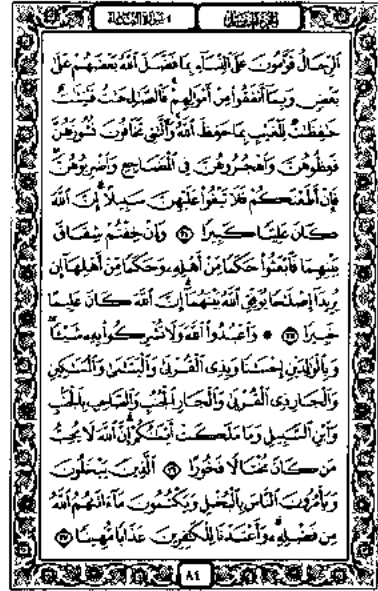 الجزء الخامس ٤ سورة النساء
ٱلرِّجَالُ قَوَّٰمُونَ عَلَى ٱلنِّسَآءِ بِمَا فَضَّلَ ٱللَّهُ بَعْضَهُمْ عَلَىٰ
بَعْضٍ وَبِمَآ أَنفَقُوا۟ مِنْ أَمْوَٰلِهِمْ فَٱلصَّٰلِحَٰتُ قَٰنِتَٰتٌ
حَٰفِظَٰتٌ لِّلْغَيْبِ بِمَا حَفِظَ ٱللَّهُ وَٱلَّٰتِى تَخَافُونَ نُشُوزَهُنَّ
فَعِظُوهُنَّ وَٱهْجُرُوهُنَّ فِى ٱلْمَضَاجِعِ وَٱضْرِبُوهُنَّ
فَإِنْ أَطَعْنَكُمْ فَلَا تَبْغُوا۟ عَلَيْهِنَّ سَبِيلًا إِنَّ ٱللَّهَ
كَانَ عَلِيًّا كَبِيرًا ٣٤ وَإِنْ خِفْتُمْ شِقَاقَ
بَيْنِهِمَا فَٱبْعَثُوا۟ حَكَمًا مِّنْ أَهْلِهِۦ وَحَكَمًا مِّنْ أَهْلِهَآ إِن
يُرِيدَآ إِصْلَٰحًا يُوَفِّقِ ٱللَّهُ بَيْنَهُمَآ إِنَّ ٱللَّهَ كَانَ عَلِيمًا
خَبِيرًا ٣٥ ۞ وَٱعْبُدُوا۟ ٱللَّهَ وَلَا تُشْرِكُوا۟ بِهِۦ شَيْـًٔا
وَبِٱلْوَٰلِدَيْنِ إِحْسَٰنًا وَبِذِى ٱلْقُرْبَىٰ وَٱلْيَتَٰمَىٰ وَٱلْمَسَٰكِينِ
وَٱلْجَارِ ذِى ٱلْقُرْبَىٰ وَٱلْجَارِ ٱلْجُنُبِ وَٱلصَّاحِبِ بِٱلْجَنۢبِ
وَٱبْنِ ٱلسَّبِيلِ وَمَا مَلَكَتْ أَيْمَٰنُكُمْ إِنَّ ٱللَّهَ لَا يُحِبُّ
مَن كَانَ مُخْتَالًا فَخُورًا ٣٦ ٱلَّذِينَ يَبْخَلُونَ
وَيَأْمُرُونَ ٱلنَّاسَ بِٱلْبُخْلِ وَيَكْتُمُونَ مَآ ءَاتَىٰهُمُ ٱللَّهُ
مِن فَضْلِهِۦ وَأَعْتَدْنَا لِلْكَٰفِرِينَ عَذَابًا مُّهِينًا ٣٧
٨٤